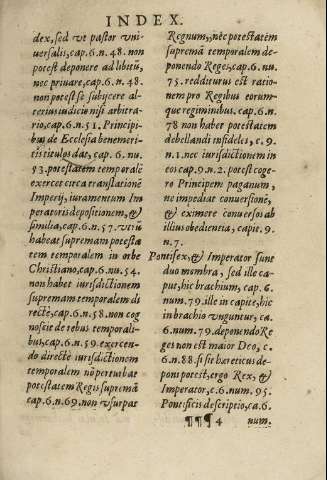 INDEX.
dex, sed vt pastor vni-
uersalis, cap. 6. n. 48. non
potest deponere ad libitũ,
nec priuare, cap. 6. n. 48.
non potest se subijcere al-
terius iudicio nisi arbitra-
rio, cap. 6. n. 51. Principi-
bus de Ecclesia benemeri-
tis titulos dat, cap. 6. nu.
53. potestatem temporalẽ
exercet circa translationẽ
Imperij, iuramentum Im
peratoris depositionem, &
similia, cap. 6. n. 57. vt ñ
habeat supremam potesta
tem temporalem in orbe
Christiano, cap. 6. nu. 54.
non habet iurisdictionem
supremam temporalem di
rectè, cap. 6. n. 58. non cog
noscit de rebus temporali-
bus, cap. 6. n. 59. exercen-
do directè iurisdictionem
temporalem nõ perturbat
potestatem Regis supremã
cap. 6. n. 69. non vsurpat
Regnum, nec potestatem
supremã temporalem de-
ponendo Reges, cap. 6. nu.
75. redditurus est ratio-
nem pro Regibus eorum-
que regiminibus. cap. 6. n.
78 non habet potestatem
debellandi infideles, c. 9.
n. 1. nec iurisdictionem in
eos cap. 9. n. 2. potest coge-
re Principem paganum,
ne impediat conuersionẽ,
& eximere conuersos ab
illius obedientia, capit. 9.
n. 7.
Pontifex, & Imperator sunt
duo membra, sed ille ca-
put, hic brachium, cap. 6.
num. 79. ille in capite, hic
in brachio vnguntur, ca.
6. num. 79. deponendo Re
ges non est maior Deo, c.
6. n. 88. si sit hæreticus de-
poni potest, ergo Rex, &
Imperator, c. 6. num. 95.
Pontificis descriptio, ca. 6.
¶¶¶ 4 num.